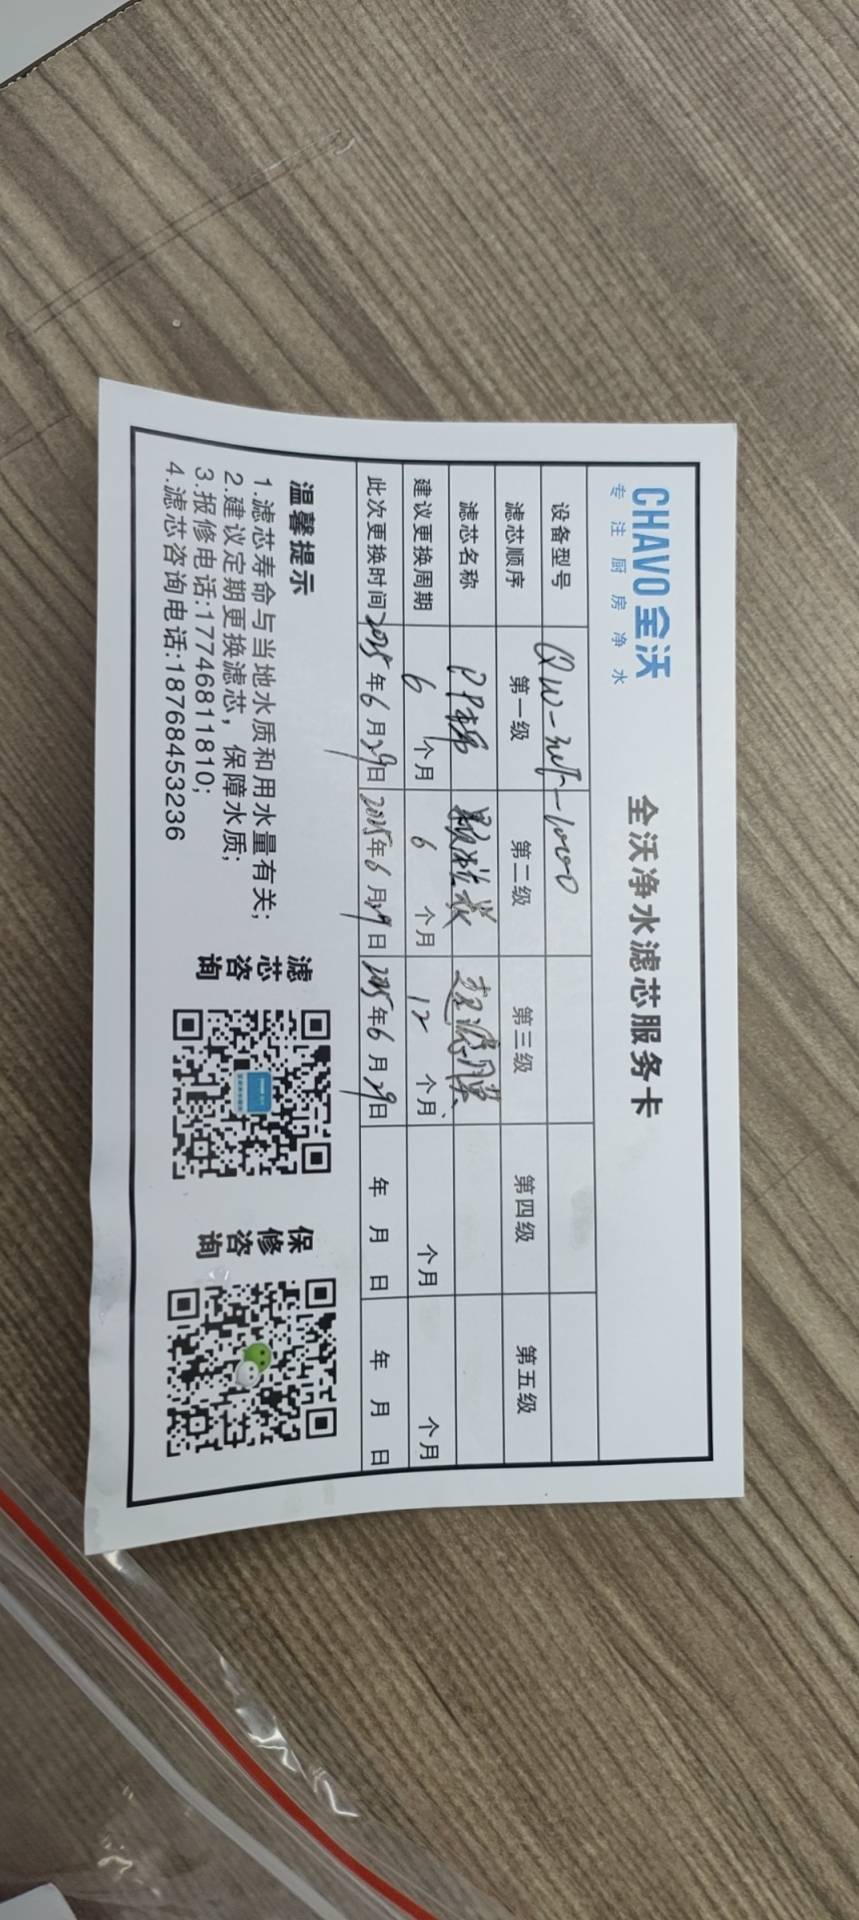 CHAVO全沃
专注厨房净水
全沃净水滤芯服务卡
设备型号 QW- -1000
滤芯顺序 第一级 第二级 第三级 第四级 第五级
滤芯名称 PP棉 颗粒炭 超滤膜
建议更换周期 6个月 6个月 12个月 个月 个月
此次更换时间 2025年6月29日 2025年6月29日 2025年6月29日 年月日 年月日
温馨提示
1.滤芯寿命与当地水质和用水量有关;
2.建议定期更换滤芯，保障水质;
3.报修电话:17746811810;
4.滤芯咨询电话:18768453236
滤芯咨询
保修咨询